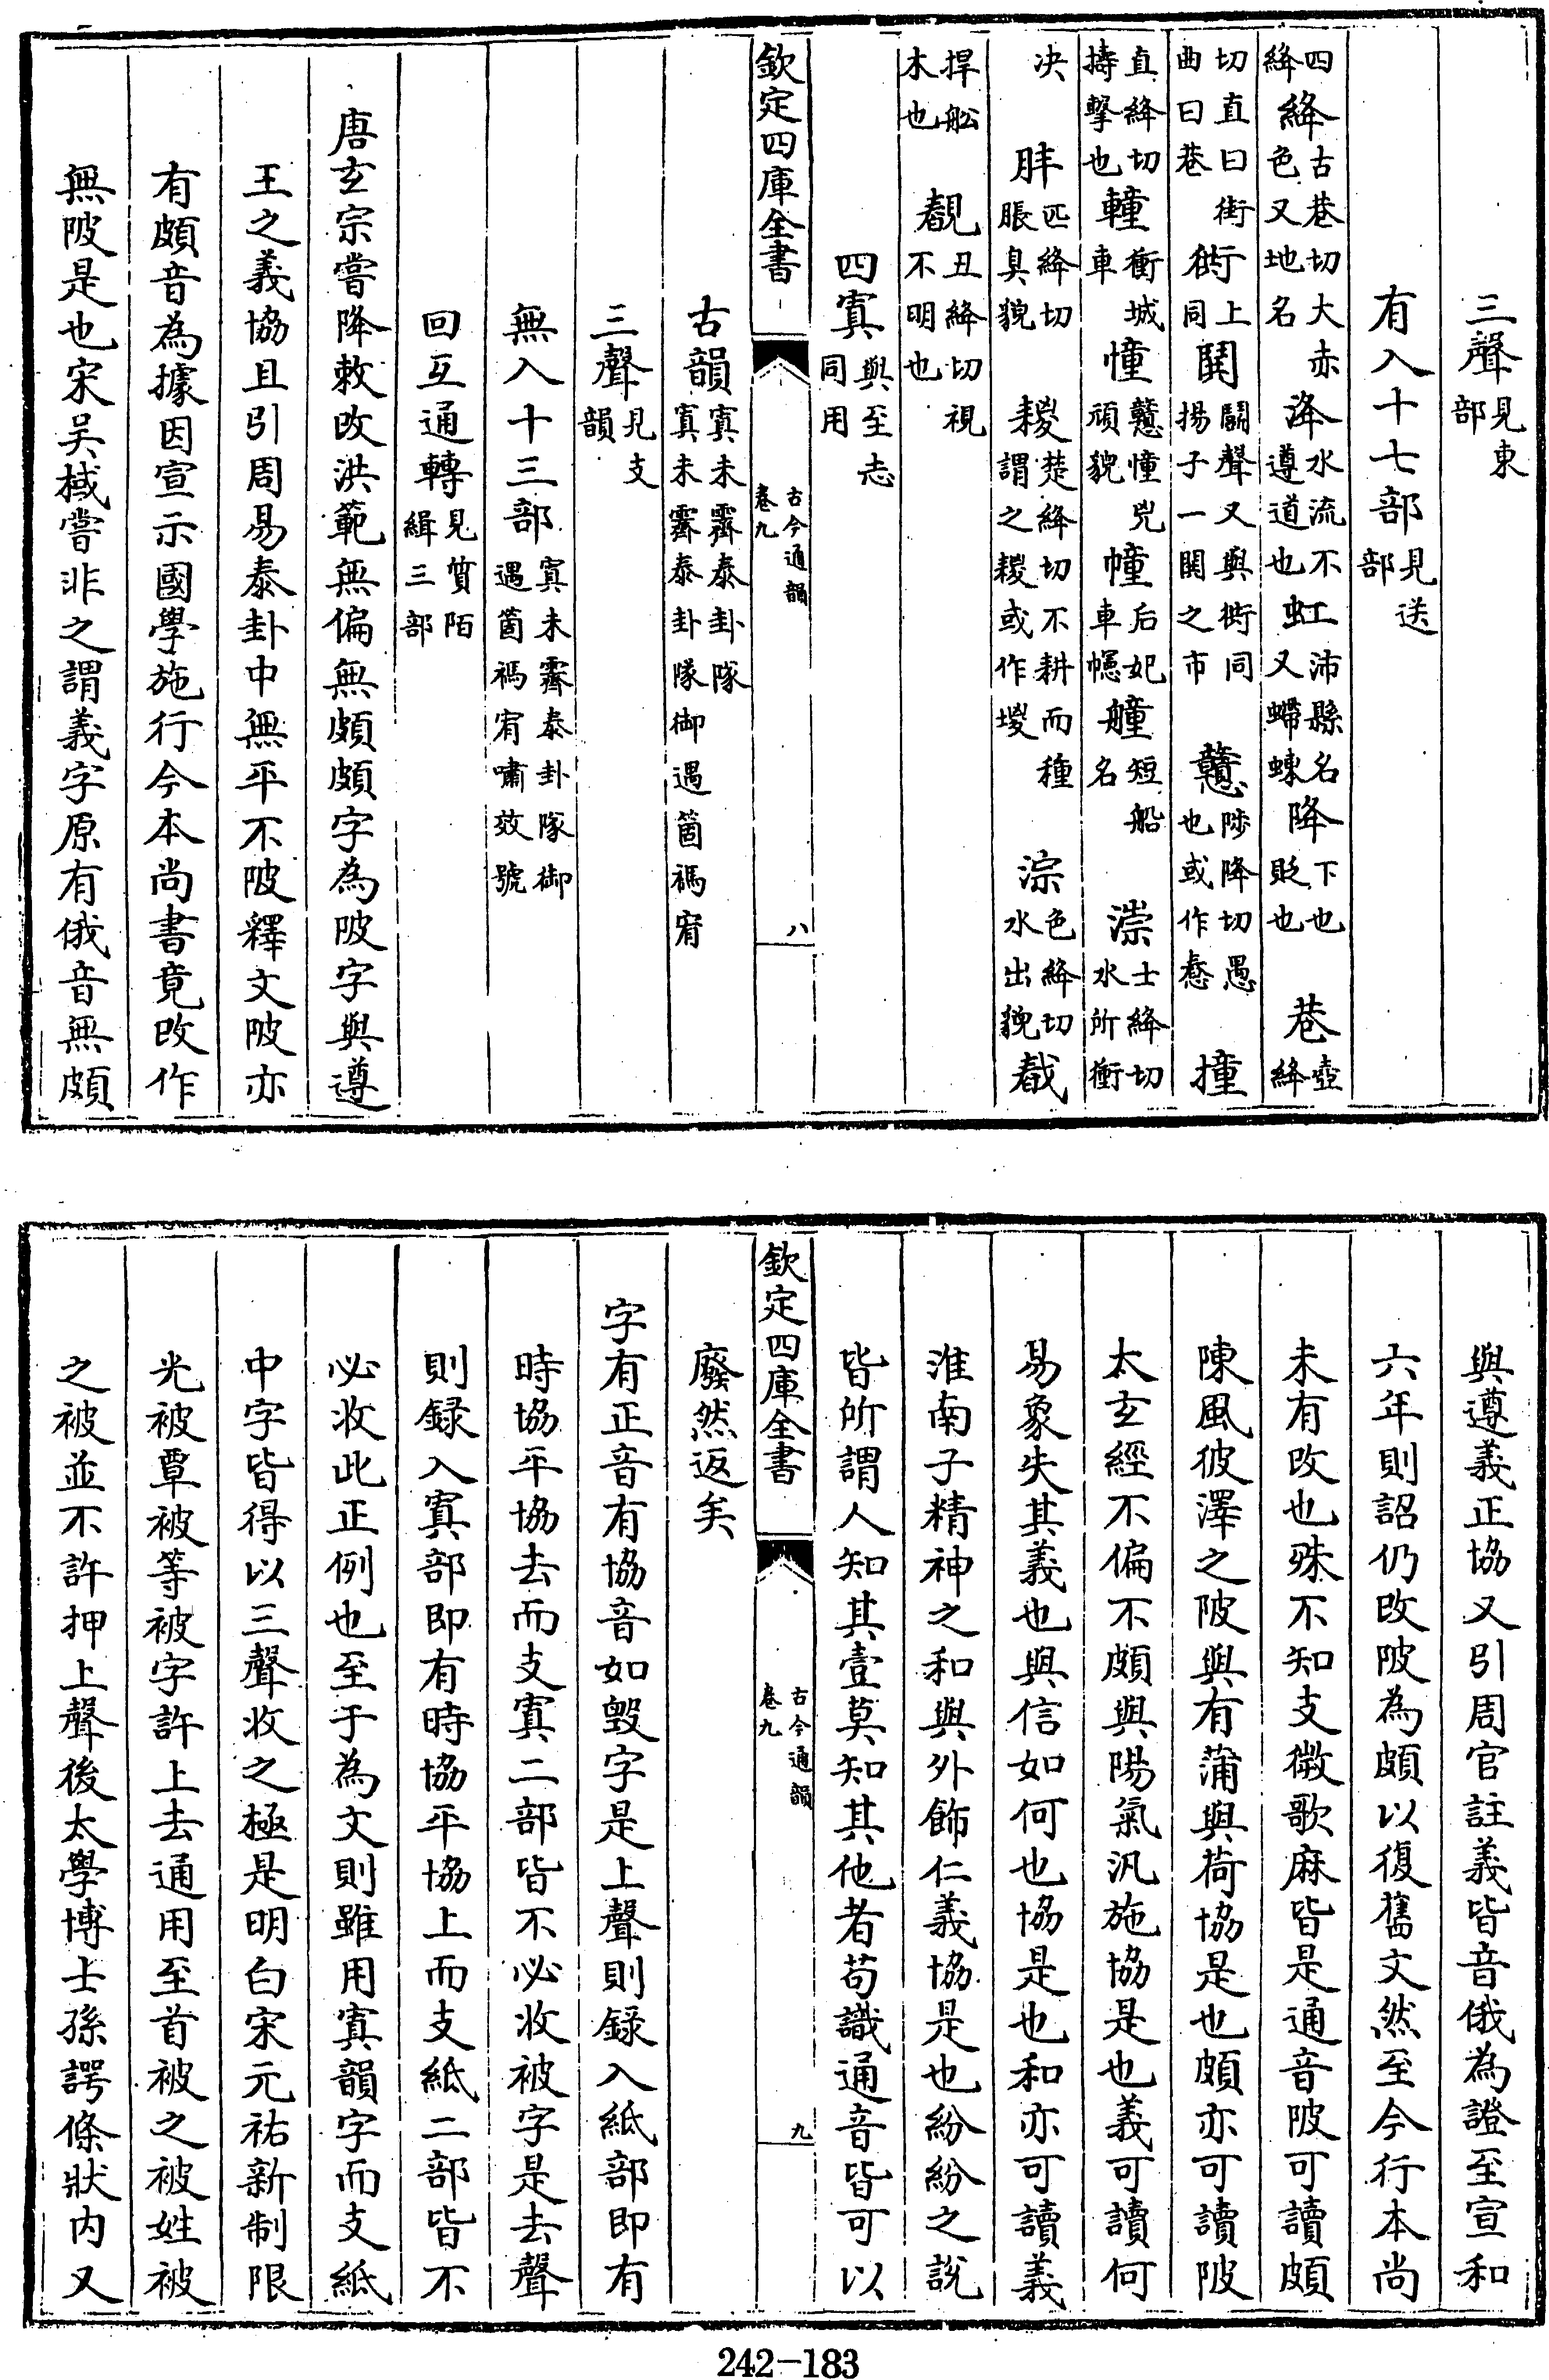 三聲見東部
有入十七部見送部
四絳絳古巷切大赤色又地名洚水流不遵道也虹沛縣名又螮蝀降下也貶也巷壺絳
切直曰街曲曰巷𧗱上同鬨鬬聲又與𧗱同揚子一鬨之市戇陟降切愚也或作𢥞撞
直絳切擣擊也䡴衝城車憧戇憧兇頑貌幢后妃車幰艟短船名漴士絳切水所衝
決胖匹絳切脹臭貌糉楚絳切不耕而種謂之糉或作堫淙色絳切水出貌䚎
捍船木也覩丑絳切視不明也
四寘與至志同用
欽定四庫全書
古今通韻
卷九
八
古韻寘未霽泰卦隊寘未霽泰卦隊御遇箇禡宥
三聲見支韻
無入十三部寘未霽泰卦隊御遇箇禡宥嘯效號
回互通轉見質陌緝三部
唐玄宗嘗降敕改洪範無偏無頗頗字為陂字與遵
王之義協且引周易泰卦中無平不陂釋文陂亦
有頗音為據因宣示國學施行今本尚書竟改作
無陂是也宋吳棫嘗非之謂義字原有俄音無頗
與遵義正協又引周官註義皆音俄為證至宣和
六年則詔仍改陂為頗以復舊文然至今行本尚
未有改也殊不知支微歌麻皆是通音陂可讀頗
陳風彼澤之陂與有蒲與荷協是也頗亦可讀陂
太玄經不偏不頗與陽氣汎施協是也義可讀何
易象失其義也與信如何也協是也和亦可讀義
淮南子精神之和與外飾仁義協是也紛紛之說
皆所謂人知其壹莫知其他者苟識通音皆可以
欽定四庫全書
古今通韻
卷九
九
廢然返矣
字有正音有協音如毀字是上聲則錄入紙部即有
時協平協去而支寘二部皆不必收被字是去聲
則録入寘部即有時協平協上而支紙二部皆不
必收此正例也至于為文則雖用寘韻字而支紙
中字皆得以三聲收之極是明白宋元祐新制限
光被覃被等被字許上去通用至首被之被姓被
之被並不許押上聲後太學博士孫諤條狀內又
242-183